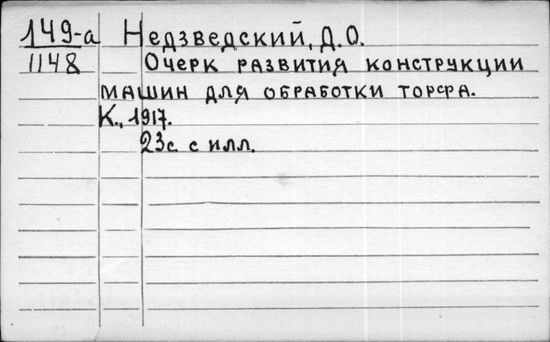 149-а Недзведский, Д.О.
1148 Очерк развития конструкции
машин для обработки торфа.
К., 1917.
23с. с илл.